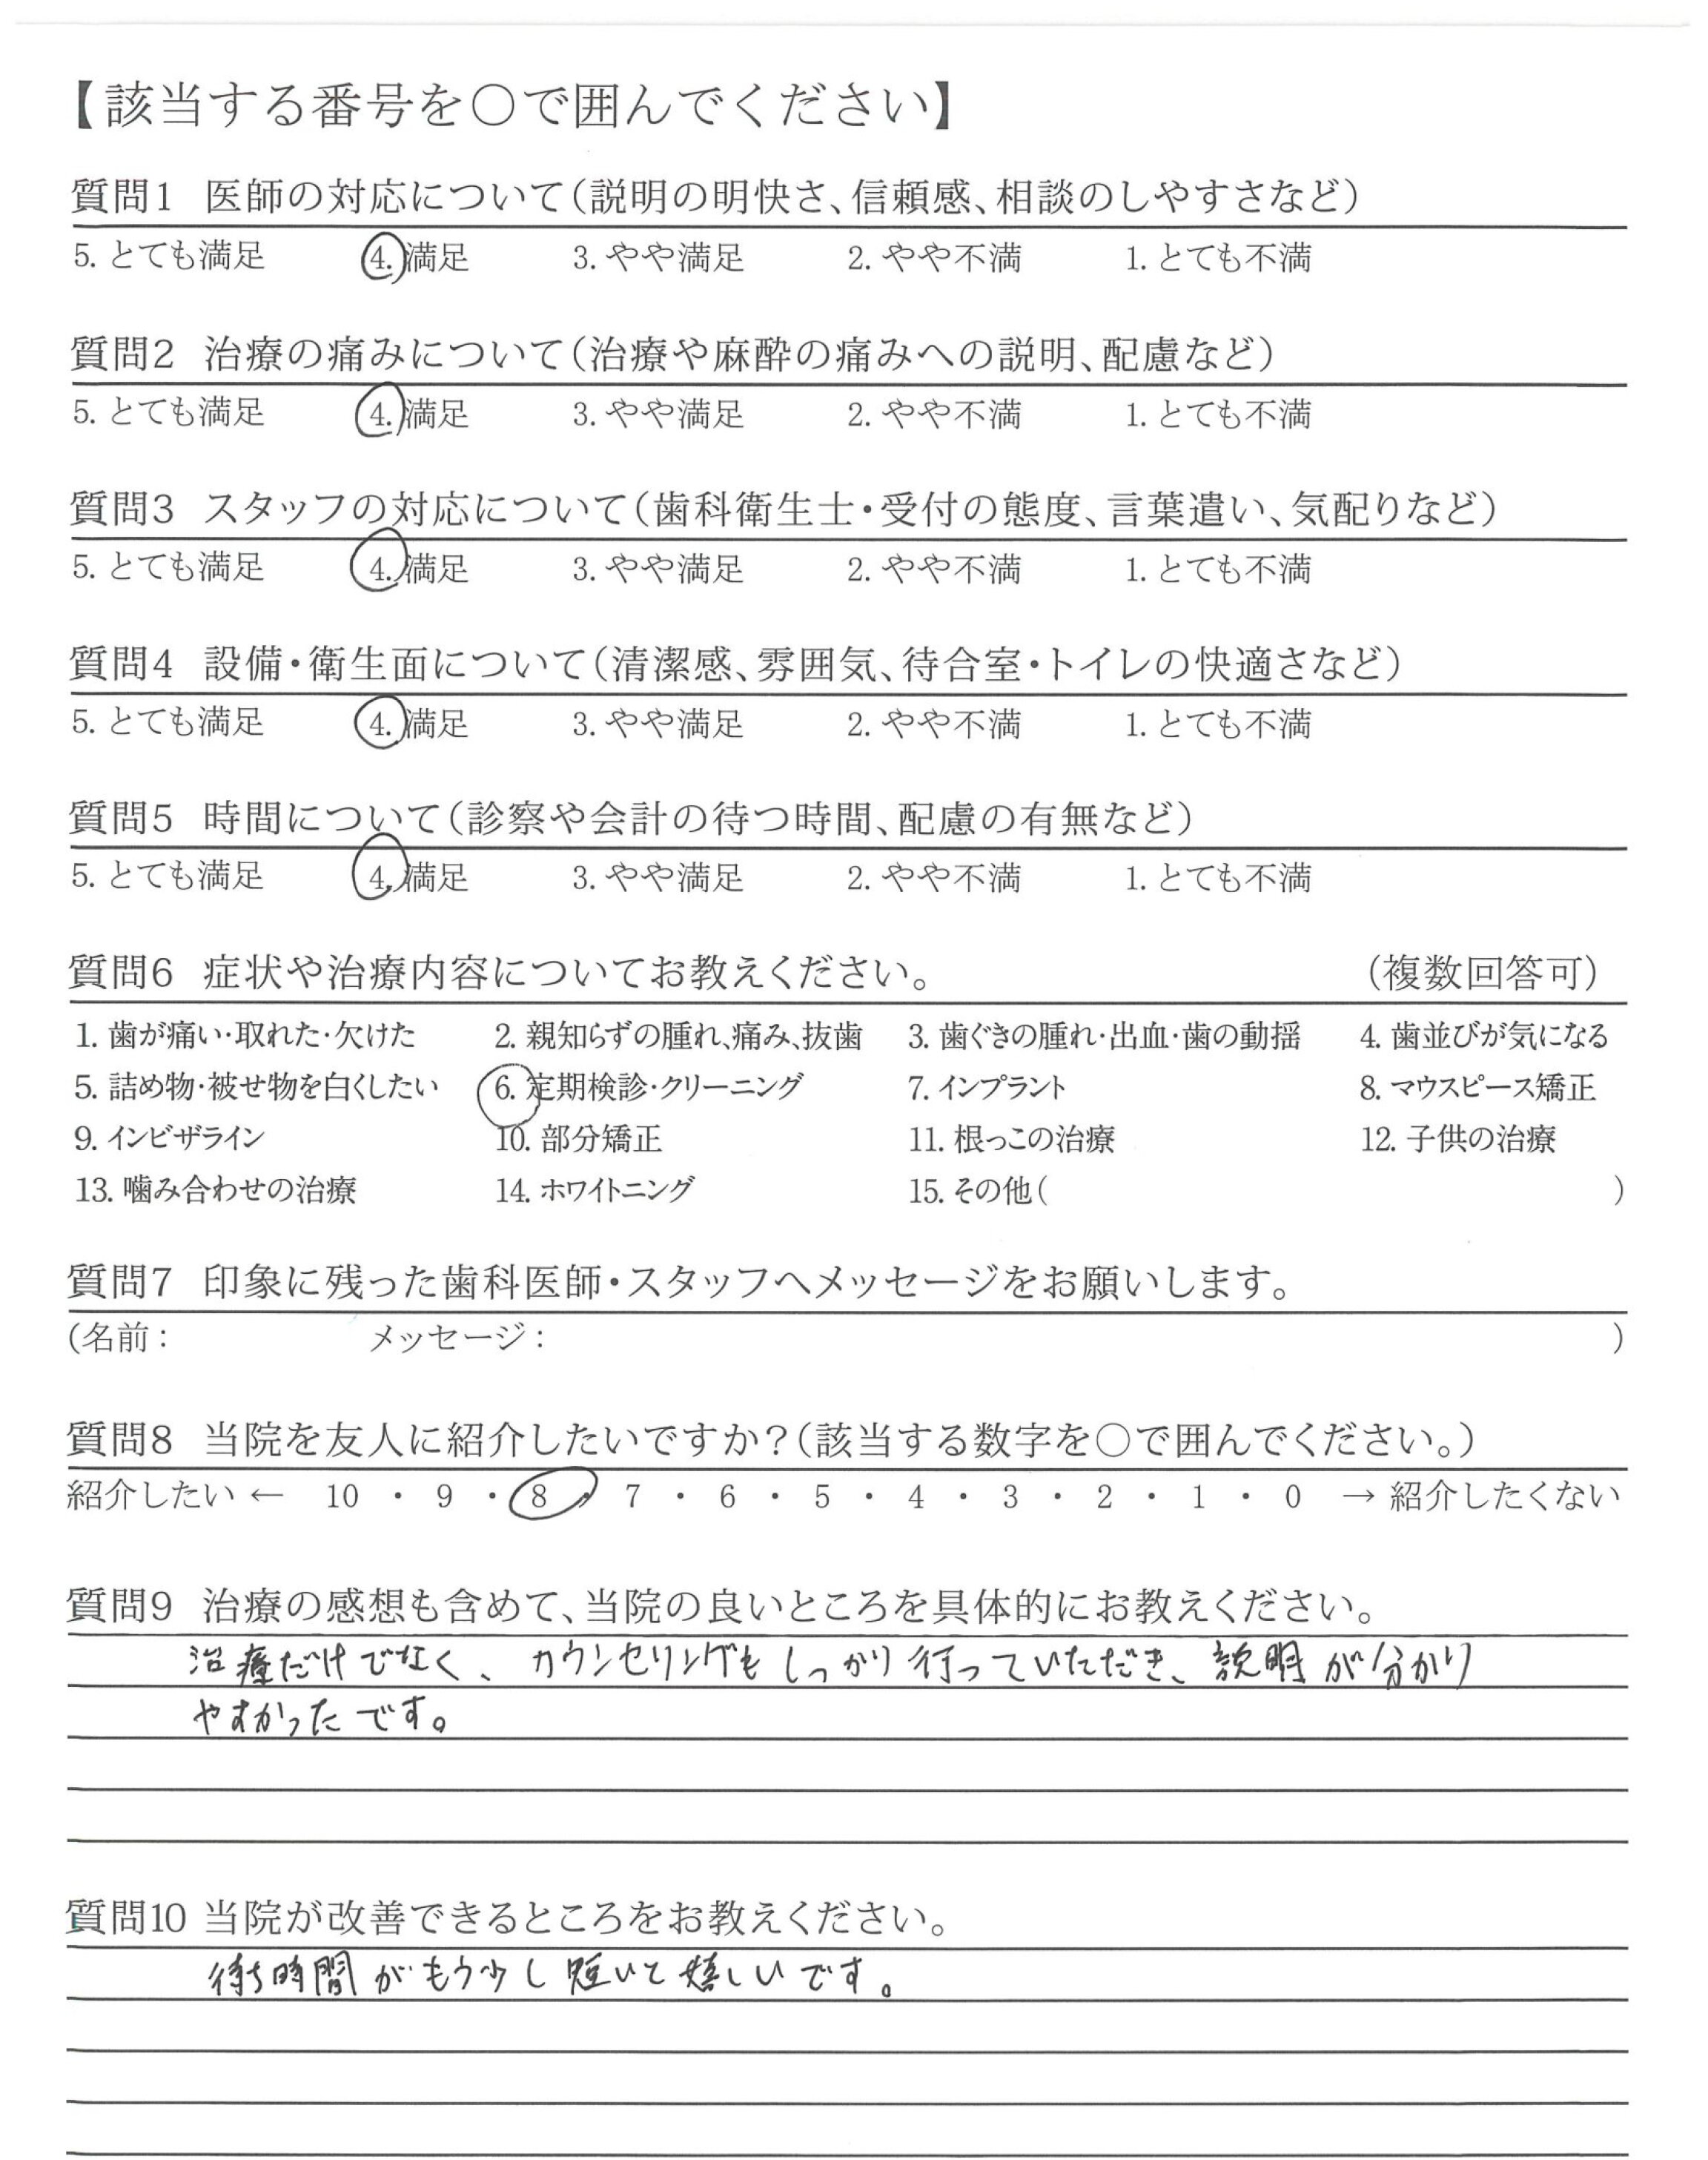 【該当する番号を○で囲んでください】
質問1 医師の対応について(説明の明快さ、信頼感、相談のしやすさなど)
5. とても満足 4. 満足 3. やや満足 2. やや不満 1. とても不満
質問2 治療の痛みについて(治療や麻酔の痛みへの説明、配慮など)
5. とても満足 4. 満足 3. やや満足 2. やや不満 1. とても不満
質問3 スタッフの対応について(歯科衛生士・受付の態度、言葉遣い、気配りなど)
5. とても満足 4. 満足 3. やや満足 2. やや不満 1. とても不満
質問4 設備・衛生面について(清潔感、雰囲気、待合室・トイレの快適さなど)
5. とても満足 4. 満足 3. やや満足 2. やや不満 1. とても不満
質問5 時間について(診察や会計の待つ時間、配慮の有無など)
5. とても満足 4. 満足 3. やや満足 2. やや不満 1. とても不満
質問6 症状や治療内容についてお教えください。 (複数回答可)
1. 歯が痛い・取れた・欠けた 2. 親知らずの腫れ、痛み、抜歯 3. 歯ぐきの腫れ・出血・歯の動揺 4. 歯並びが気になる
5. 詰め物・被せ物を白くしたい 6. 定期検診・クリーニング 7. インプラント 8. マウスピース矯正
9. インビザライン 10. 部分矯正 11. 根っこの治療 12. 子供の治療
13. 噛み合わせの治療 14. ホワイトニング 15. その他( )
質問7 印象に残った歯科医師・スタッフへメッセージをお願いします。
(名前: メッセージ: )
質問8 当院を友人に紹介したいですか?(該当する数字を○で囲んでください。)
紹介したい ← 10 ・ 9 ・ 8 ・ 7 ・ 6 ・ 5 ・ 4 ・ 3 ・ 2 ・ 1 ・ 0 → 紹介したくない
質問9 治療の感想も含めて、当院の良いところを具体的にお教えください。
治療だけでなく、カウンセリングもしっかり行っていただき、説明が分かり
やすかったです。
質問10 当院が改善できるところをお教えください。
待ち時間がもう少し短いと嬉しいです。